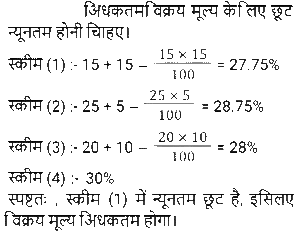 अधिकतम विक्रय मूल्य के लिए छूट
न्यूनतम होनी चाहिए।
स्कीम (1) :- 15 + 15 – 15 × 15 / 100 = 27.75%
स्कीम (2) :- 25 + 5 – 25 × 5 / 100 = 28.75%
स्कीम (3) :- 20 + 10 – 20 × 10 / 100 = 28%
स्कीम (4) :- 30%
स्पष्टतः , स्कीम (1) में न्यूनतम छूट है, इसलिए
विक्रय मूल्य अधिकतम होगा।